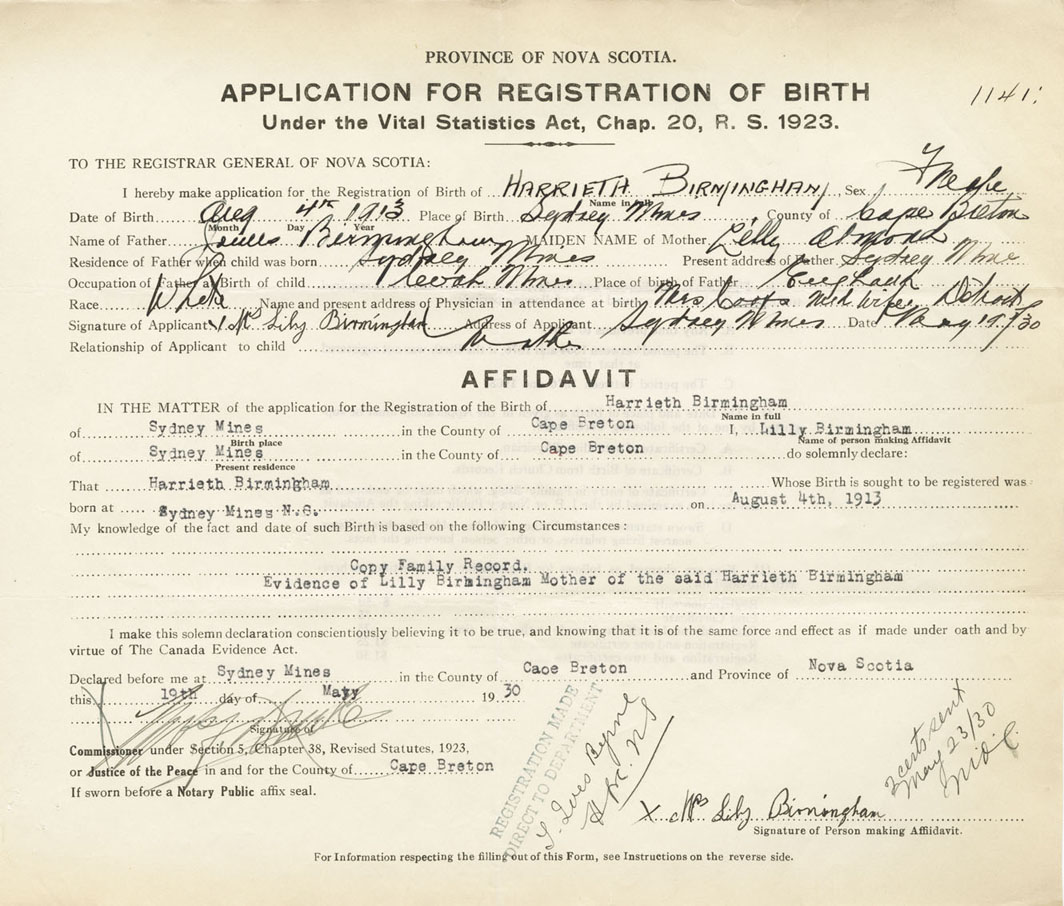 PROVINCE OF NOVA SCOTIA.
APPLICATION FOR REGISTRATION OF BIRTH
1141.
Under the Vital Statistics Act, Chap. 20, R. S. 1923.
TO THE REGISTRAR GENERAL OF NOVA SCOTIA:
I hereby make application for the Registration of Birth of HARRIETH BIRMINGHAM, Sex Female
Name in full
Date of Birth Aug 4th 1913 Place of Birth Sydney Mines, County of Cape Breton
Month Day Year
Name of Father James Birmingham MAIDEN NAME of Mother Lilly Almond
Residence of Father when child was born Sydney Mines Present address of Father Sydney Mines
Occupation of Father at Birth of child Mines Place of birth of Father England
Race White Name and present address of Physician in attendance at birth Mrs Coots Midwife
Signature of Applicant X Mrs Lily Birmingham Address of Applicant Sydney Mines Date May 19/30
Relationship of Applicant to child Mother
AFFIDAVIT
IN THE MATTER of the application for the Registration of the Birth of Harrieth Birmingham
Name in full
of Sydney Mines in the County of Cape Breton I, Lilly Birmingham
Birth place Name of person making Affidavit
of Sydney Mines in the County of Cape Breton do solemnly declare:
Present residence
That Harrieth Birmingham Whose Birth is sought to be registered was
born at Sydney Mines N.S. on August 4th, 1913
My knowledge of the fact and date of such Birth is based on the following Circumstances:
Copy Family Record.
Evidence of Lilly Birmingham Mother of the said Harrieth Birmingham
I make this solemn declaration conscientiously believing it to be true, and knowing that it is of the same force and effect as if made under oath and by
virtue of The Canada Evidence Act.
Declared before me at Sydney Mines in the County of Caoe Breton and Province of Nova Scotia
this 19th day of May 1930
Signature of
Commissioner under Section 5, Chapter 38, Revised Statutes, 1923,
or Justice of the Peace in and for the County of Cape Breton
If sworn before a Notary Public affix seal.
REGISTRATION MADE
DIRECT TO DEPARTMENT
3 certs sent
May 23/30
X Mrs Lily Birmingham
Signature of Person making Affidavit.
For Information respecting the filling out of this Form, see Instructions on the reverse side.